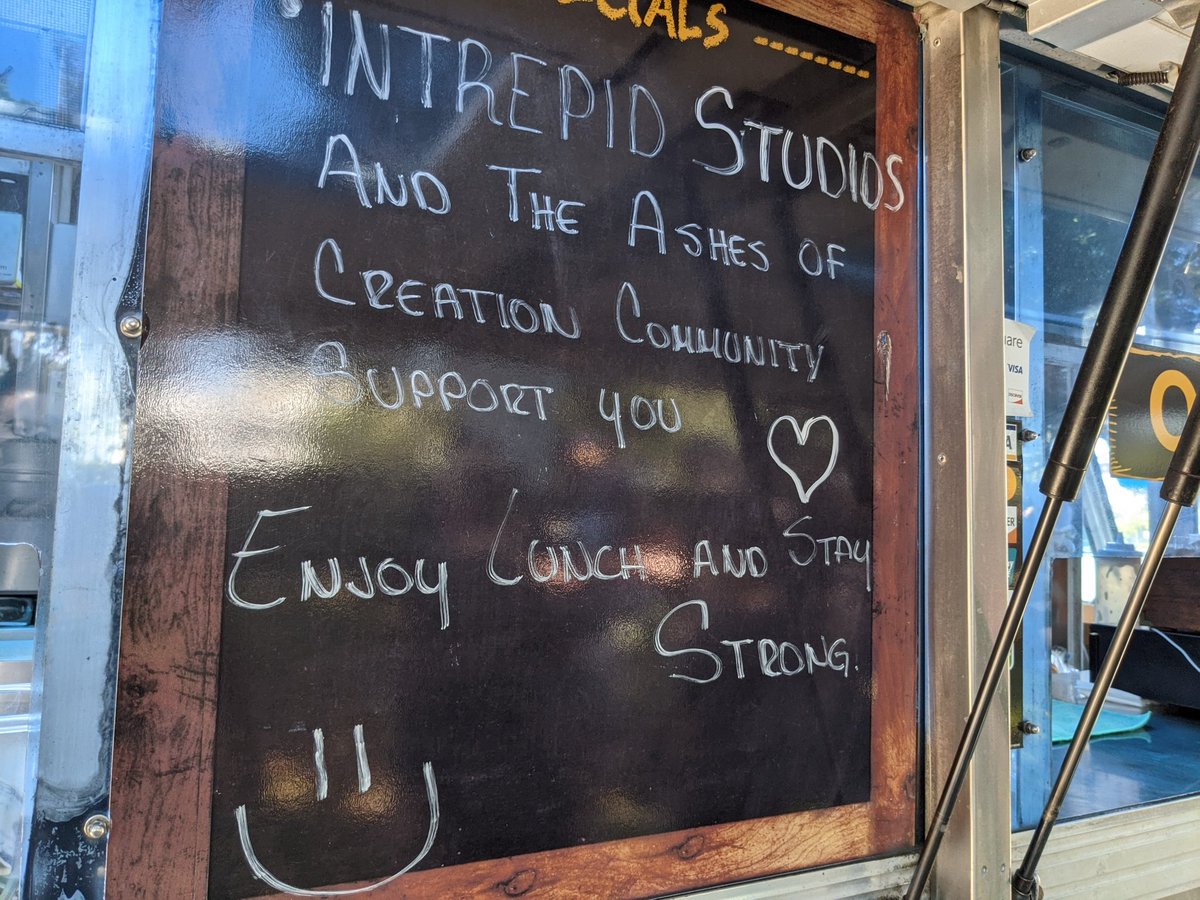 CIALS
INTREPID STUDIOS
AND THE ASHES OF
CREATION COMMUNITY
SUPPORT YOU
ENJOY LUNCH AND STAY
STRONG.
uare
VISA
DISCOVER
A
ER
O